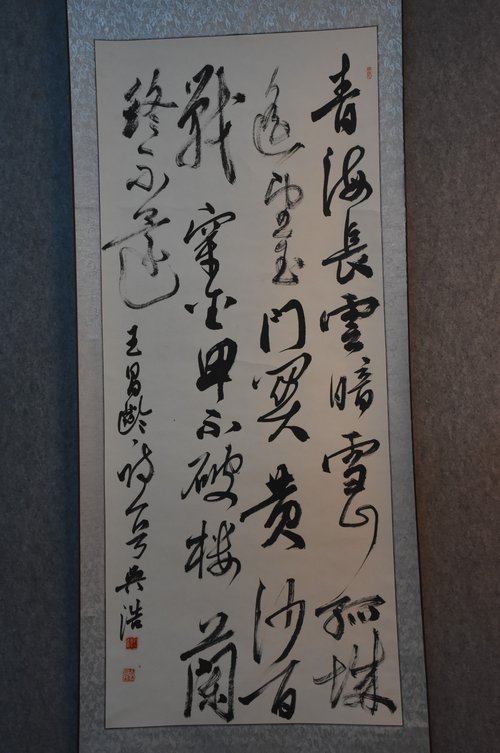 青海長雲暗雪山孤城
遙望玉門關黄沙百
戰穿金甲不破楼蘭
終不還 王昌齡詩 浩